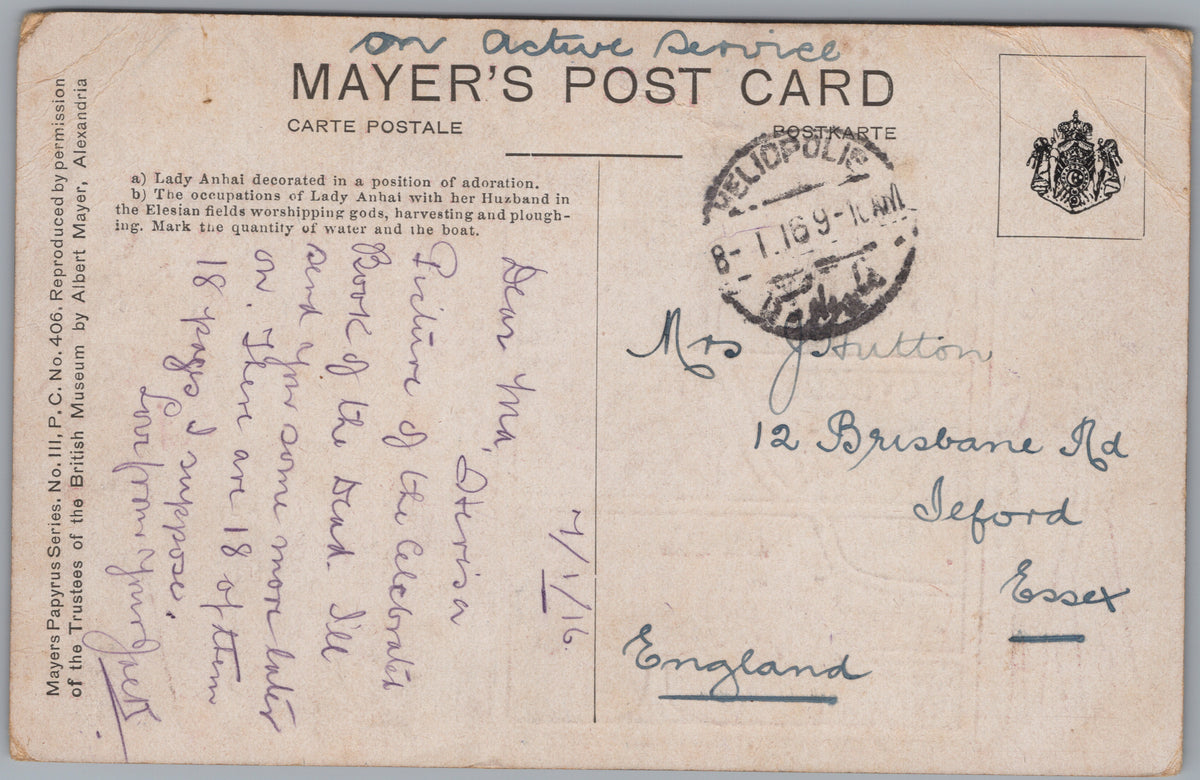 on active service
MAYER'S POST CARD
CARTE POSTALE
POSTKARTE
a) Lady Anhai decorated in a position of adoration.
b) The occupations of Lady Anhai with her Huzband in
the Elesian fields worshipping gods, harvesting and plough-
ing. Mark the quantity of water and the boat.
Mayers Papyrus Series. No. III, P. C. No. 406. Reproduced by permission
of the Trustees of the British Museum by Albert Mayer, Alexandria
7/1/16
Dear Ma,
Here is a
Picture of the Celebrated
Book of the Dead. I'll
send you some more later
on. There are 18 of them
18 pages I suppose.
Love from your Jack
HELIOPOLIS
8-1.16 9-10 AM
Mrs J Hutton
12 Brisbane Rd
Ilford
Essex
England